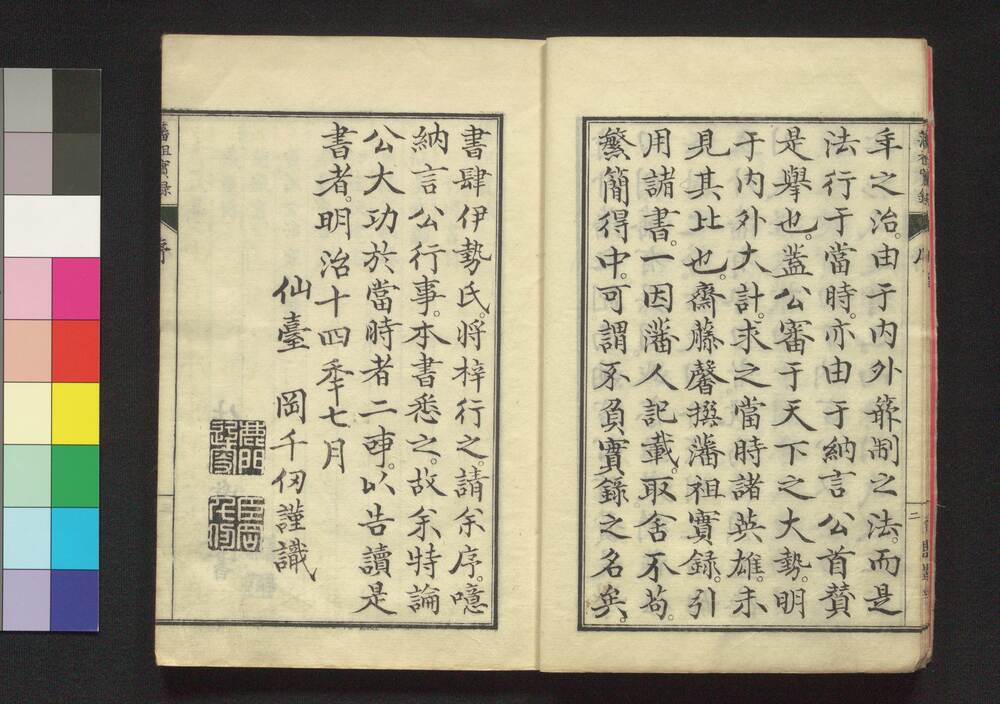 年之治。由于内外筭制之法。而是
法行于當時。亦由于納言公首贊
是擧也。蓋公審于天下之大勢。明
于内外大計。求之當時諸英雄。未
見其比也。齋藤馨撰藩祖實録。引
用諸書。一因藩人記載。取舍不苟。
繁簡得中。可謂不負實錄之名矣。
書肆伊勢氏。将梓行之。請余序。噫
納言公行事。本書悉之。故余特論
公大功於當時者二事。以告讀是
書者。明治十四季七月
仙臺 岡千仞謹識
藩祖實録
序
二